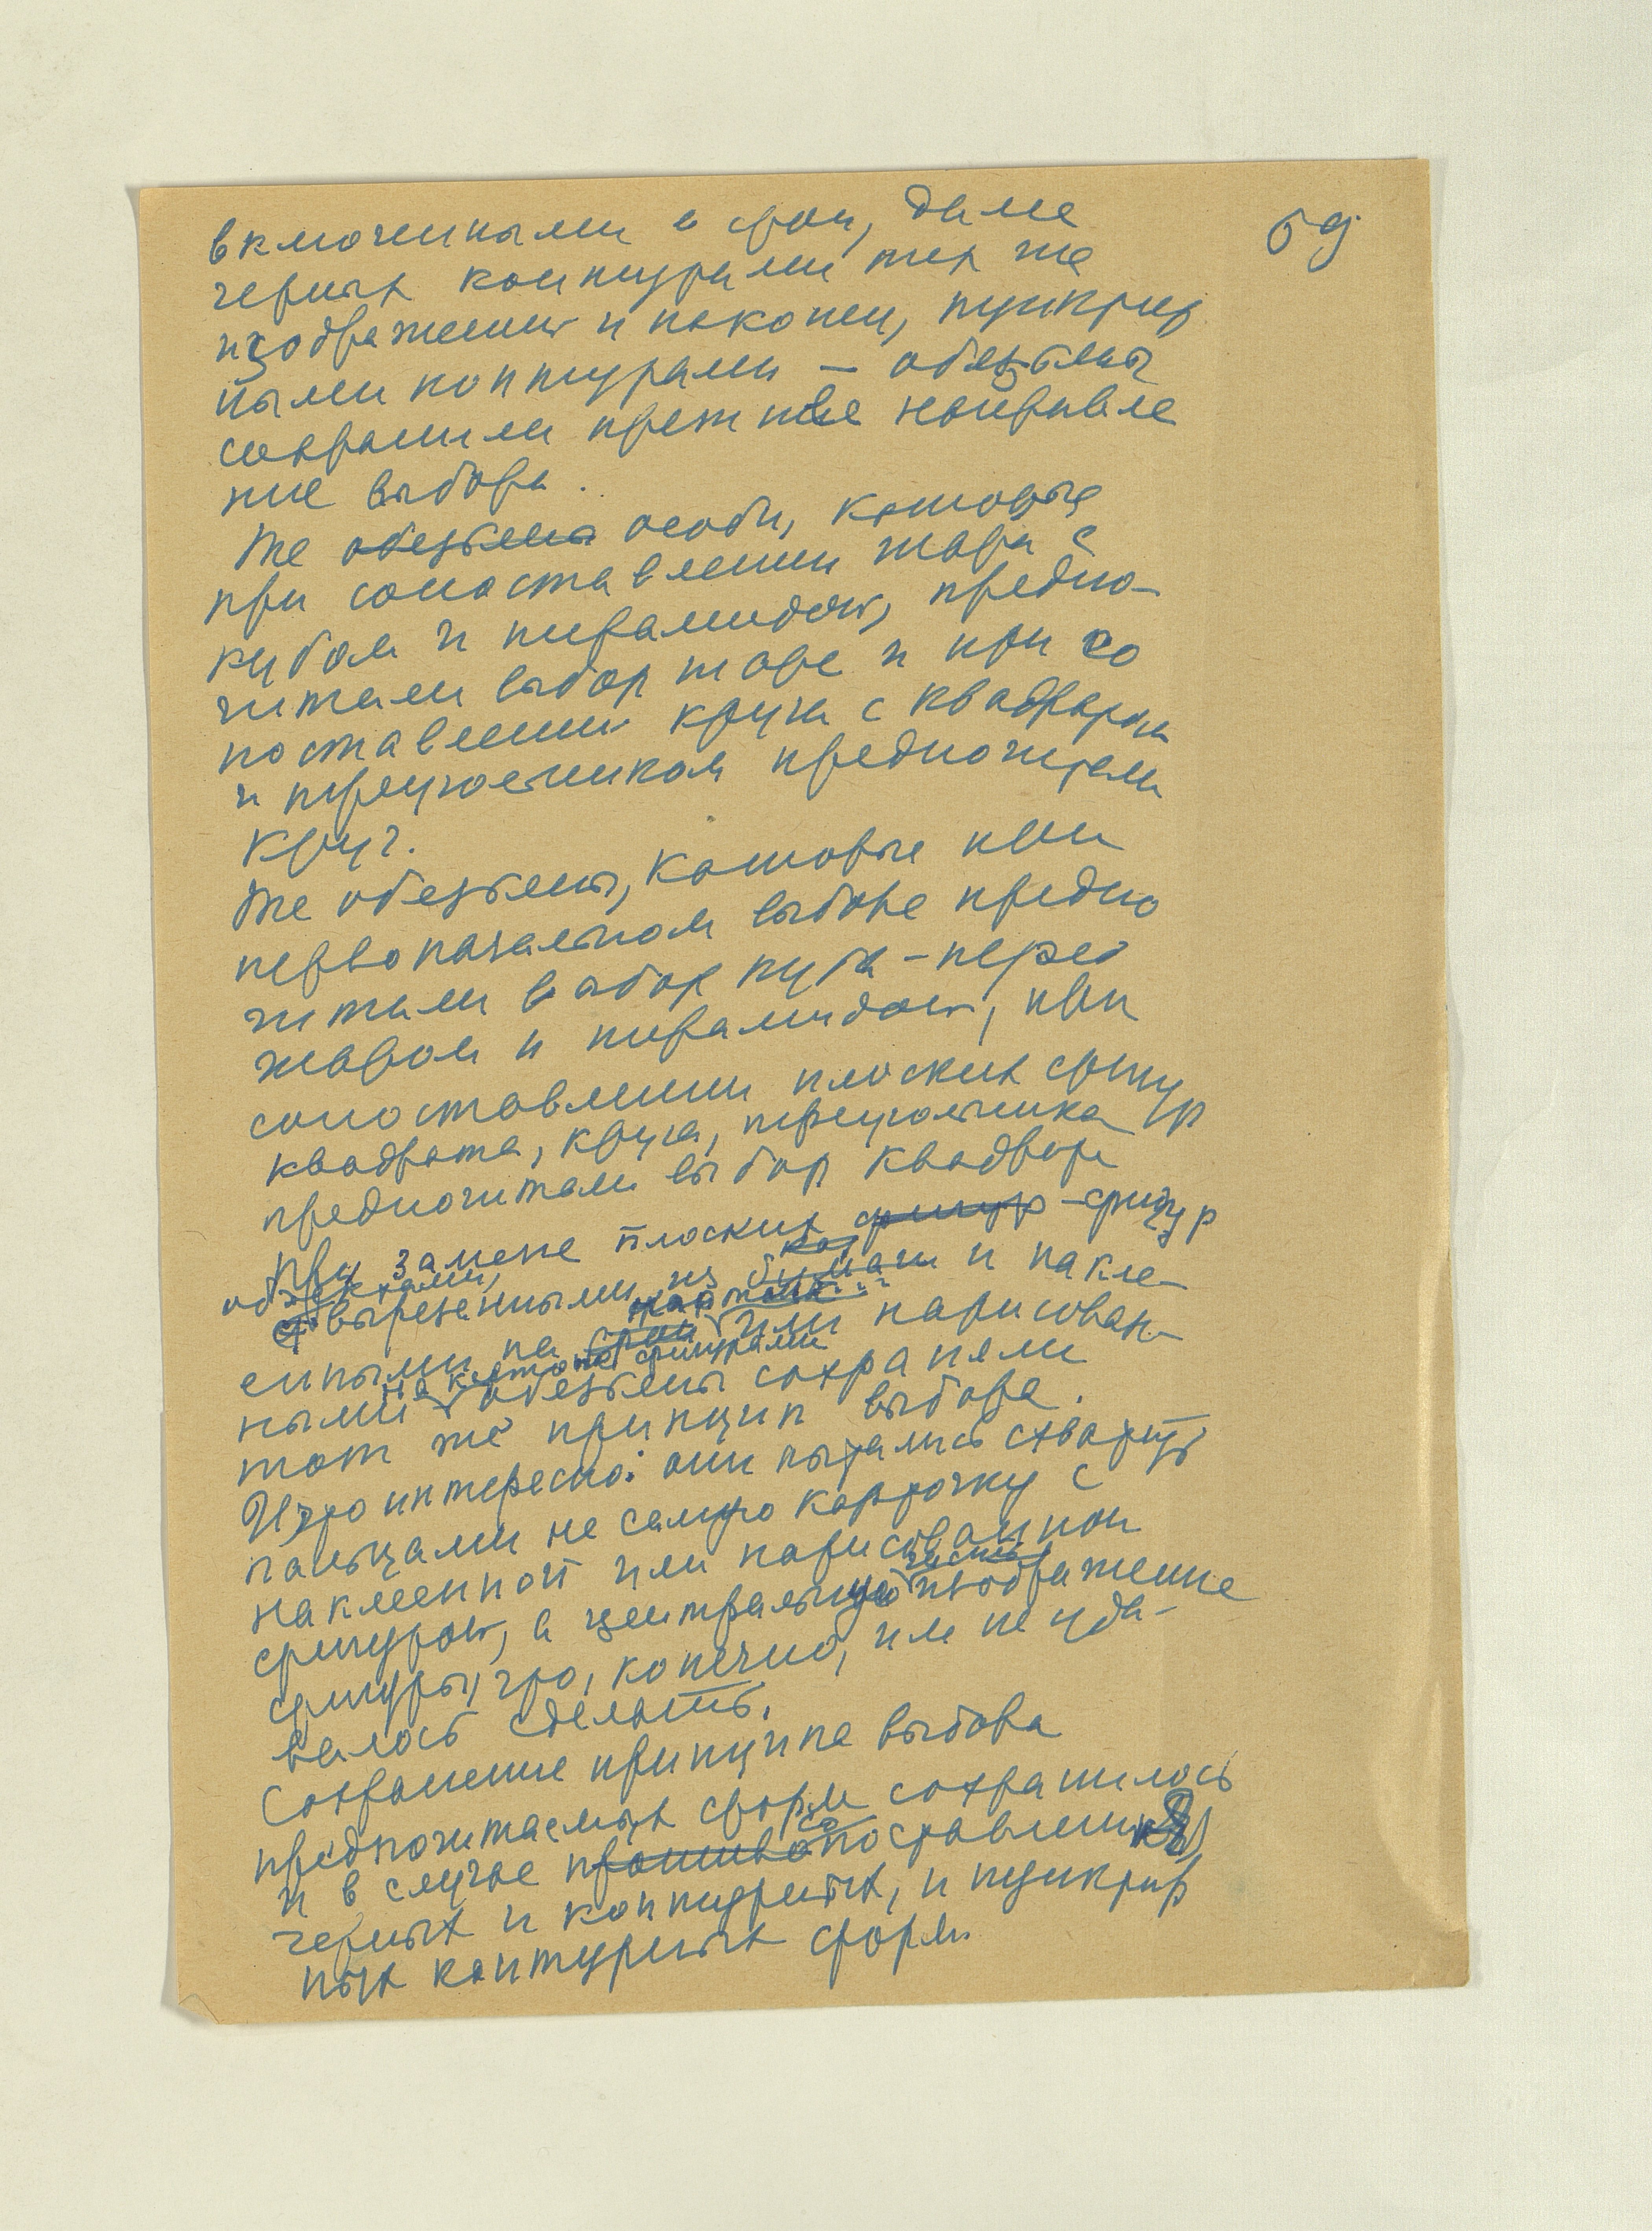 59
включенными в фон, далее
черных контурами тех же
изображений и наконец, пунктир
ными контурами — обезьяны
сохранили прежнее направле
ние выбора.
Те же обезьяны особи, которые
при сопоставлении шара с
кубом и пирамидой, предпо-
читали выбор шара и при со
поставлении круга с квадратом
и треугольником предпочитали
круг.
Те же обезьяны, которые при
первоначальном выборе предпо
читали выбор куба – перед
шаром и пирамидой, при
сопоставлении плоских фигур
квадрата, круга, треугольника
предпочитали выбор квадрата
При замене плоских фигур – фигур
объектами,
вырезенными из бумаги и накле-
картона
енными на фон или нарисован-
на картоне фигурами
ными обезьяны сохраняли
тот же принцип выбора.
И что интересно: они пытались схватить
пальцами не самую карточку с
наклеенной или нарисованной
часть
фигурой, а центральную изображение
фигуры, что, конечно, им не уда-
валось сделать.
Сохранение принципа выбора
предпочитаемых форм сохранилось
со
и в случае противопоставления
черных и контурных, и пунктир
ных контурных форм.